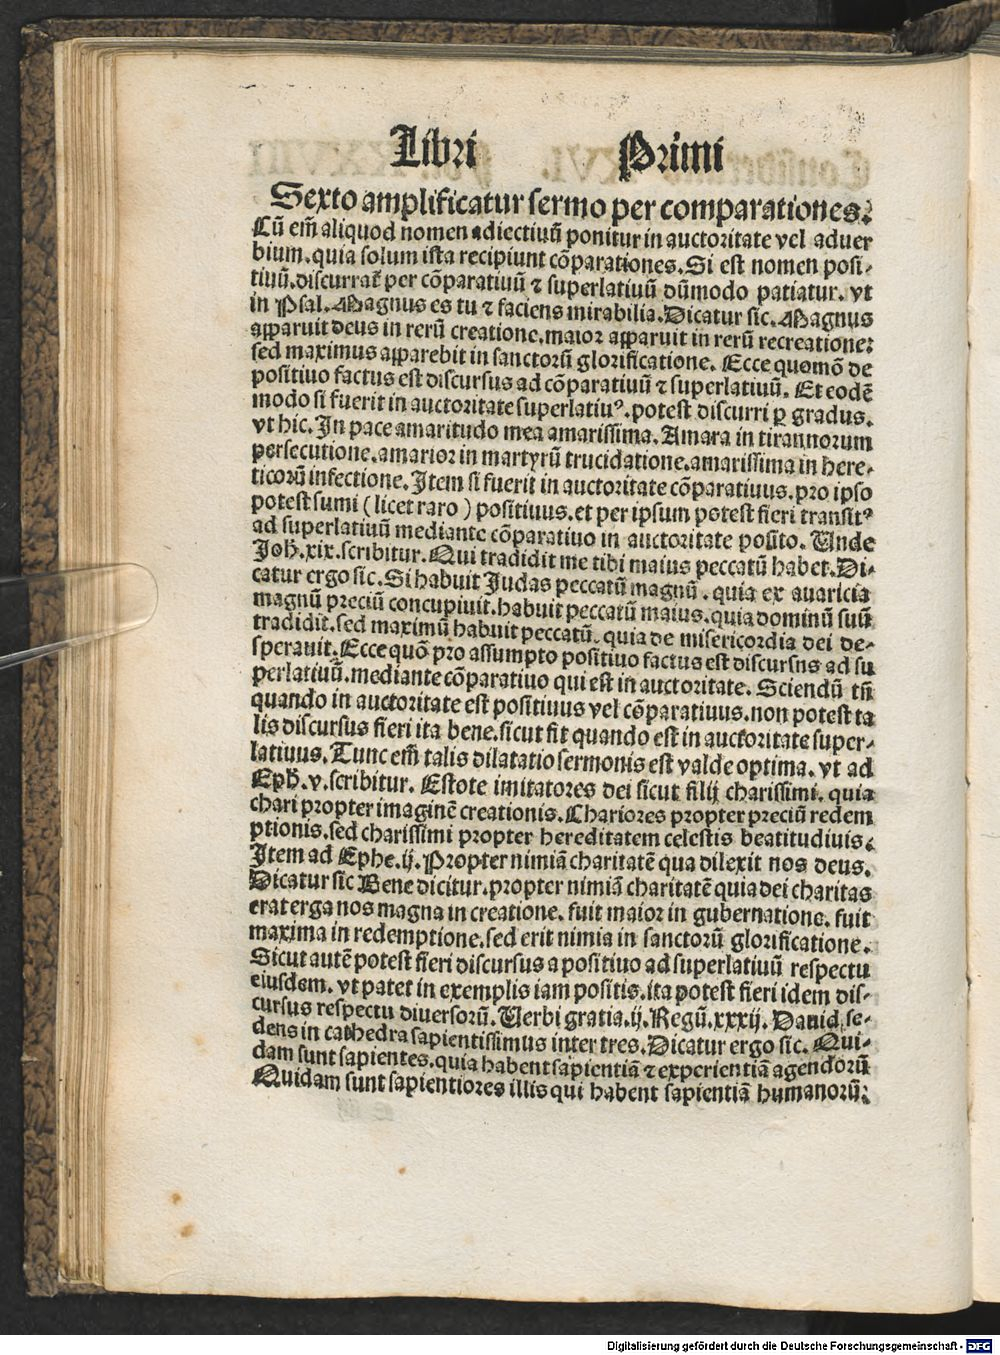 Libri Primi
Sexto amplificatur sermo per comparationes.
Cū em̄ aliquod nomen adiectiuū ponitur in auctoritate vel aduer
bium. quia solum ista recipiunt cōparationes. Si est nomen posi-
tiuū. discurrat̄ per cōparatiuū ⁊ superlatiuū dūmodo patiatur. vt
in Psal. Magnus es tu ⁊ faciens mirabilia. Dicatur sic. Magnus
apparuit deus in rerū creatione. maior apparuit in rerū recreatione:
sed maximus apparebit in sanctorū glorificatione. Ecce quomō de
positiuo factus est discursus ad cōparatiuū ⁊ superlatiuū. Et eodē
modo si fuerit in auctoritate superlatiuꝰ. potest discurri ꝑ gradus.
vt hic. In pace amaritudo mea amarissima. Amara in tirannorum
persecutione. amarior in martyrū trucidatione. amarissima in here-
ticorū infectione. Item si fuerit in auctoritate cōparatiuus. pro ipso
potest sumi (licet raro) positiuus. et per ipsum potest fieri transitꝰ
ad superlatiuū mediante cōparatiuo in auctoritate posito. Unde
Joh̄. xix. scribitur. Qui tradidit me tibi maius peccatū habet. Di-
catur ergo sic. Si habuit Judas peccatū magnū. quia ex auaricia
magnū preciū concupiuit. habuit peccatū maius. quia dominū suū
tradidit. sed maximū habuit peccatū. quia de misericordia dei de-
sperauit. Ecce quō pro assumpto positiuo factus est discursns ad su
perlatiuū. mediante cōparatiuo qui est in auctoritate. Sciendū tn̄
quando in auctoritate est positiuus vel cōparatiuus. non potest ta
lis discursus fieri ita bene. sicut fit quando est in auctoritate super-
latiuus. Tunc em̄ talis dilatatio sermonis est valde optima. vt ad
Eph̄. v. scribitur. Estote imitatores dei sicut filij charissimi. quia
chari propter imaginē creationis. Chariores propter preciū redem
ptionis. sed charissimi propter hereditatem celestis beatitudiuis.
Item ad Ephe. ij. Propter nimiā charitatē qua dilexit nos deus.
Dicatur sic Bene dicitur. propter nimiā charitatē quia dei charitas
erat erga nos magna in creatione. fuit maior in gubernatione. fuit
maxima in redemptione. sed erit nimia in sanctorū glorificatione.
Sicut autē potest fieri discursus a positiuo ad superlatiuū respectu
eiusdem. vt patet in exemplis iam positis. ita potest fieri idem dis-
cursus respectu diuersorū. Uerbi gratia. ij. Regū. xxxij. Dauid se-
dens in cathedra sapientissimus inter tres. Dicatur ergo sic. Qui-
dam sunt sapientes. quia habent sapientiā ⁊ experientiā agendorū
Quidam sunt sapientiores illis qui habent sapientiā humanorū:
Digitalisierung gefördert durch die Deutsche Forschungsgemeinschaft - DFG